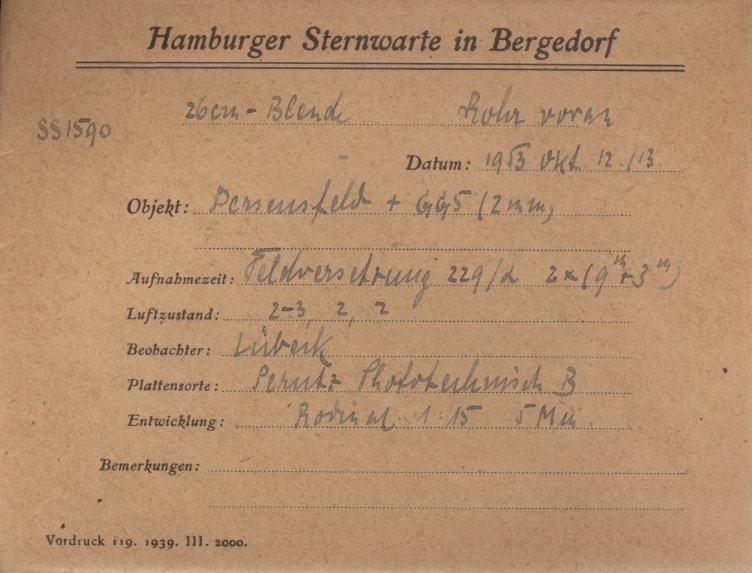 Hamburger Sternwarte in Bergedorf
26cm - Blende Rohr voran
SS1590
Datum: 1953 Okt 12./13.
Objekt: Perseusfeld + GG5 (2mm)
Aufnahmezeit: Feldversetzung 229/α 2 × (9ᵐ + 3ᵐ)
Luftzustand: 2-3, 2, 2
Beobachter: Lübeck
Plattensorte: Perutz Phototechnisch B
Entwicklung: Rodinal 1:15 5 Min
Bemerkungen:
Vordruck 119. 1939. III. 2000.